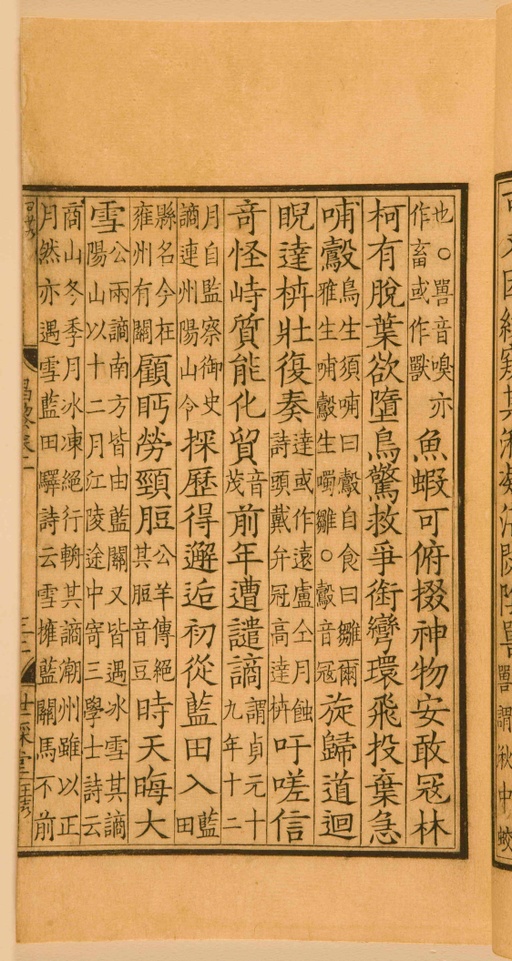 謂湫中蛟
也○嘼音嗅亦
作畜或作獸
魚蝦可俯掇神物安敢寇林
柯有脫葉欲墮鳥驚救爭銜彎環飛投棄急
哺鷇
鳥生須哺曰鷇自食曰雛爾
雅生哺鷇生噣雛○鷇音冦
旋歸道迴
睨達枿壯復奏
達或作遠盧仝月蝕
詩頭戴弁冠高達枿
吁嗟信
奇怪峙質能化貿
音
茂
前年遭譴謫
謂貞元十
九年十二
月自監察御史
謫連州陽山令
探歷得邂逅初從藍田入
藍
田
縣名今在
雍州有關
顧眄勞頸脰
公羊傳絕
其脰音豆
時天晦大
雪
公兩謫南方皆由藍關又皆遇冰雪其謫
陽山以十二月江陵途中寄三學士詩云
商山冬季月冰凍絕行輈其謫潮州雖以正
月然亦遇雪藍田驛詩云雪擁藍關馬不前